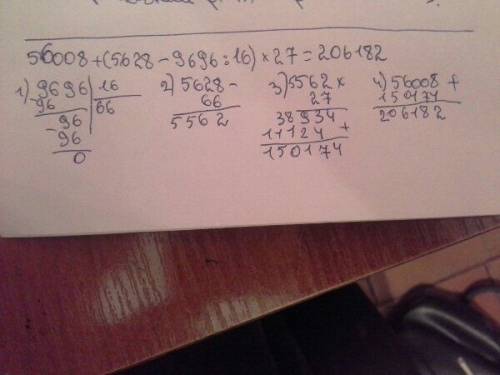 56008+(5628-9696:16)×27=206182
1) 9696 | 16 2) 5628- 3) 5562 × 4) 56008 +
-96 66 66 27 150174
-96 5562 38934 206182
96 11124 +
0 150174